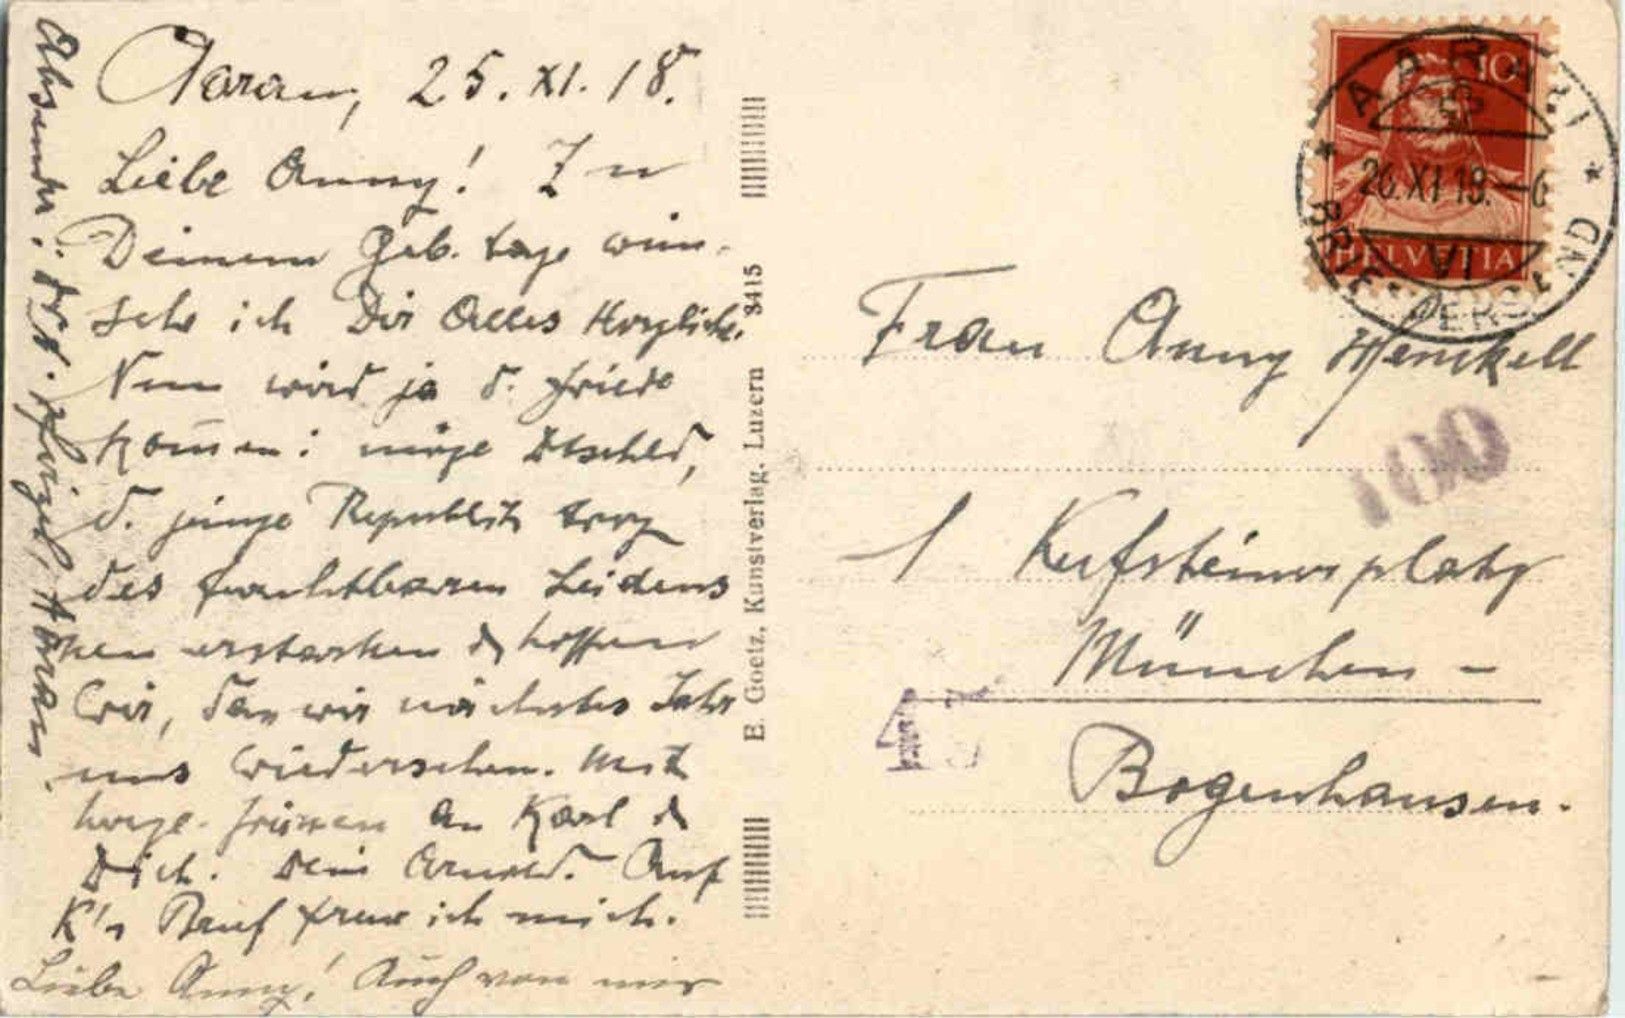 Aarau, 25. XI. 18.
Liebe Anny! Zu
Deinem Geb. tage wün-
sche ich Dir Alles Herzliche.
Nun wird ja d. Friede
kom̄en: möge Dtschld,
d. junge Republik trotz
des furchtbaren Leidens
erstarken & hoffen
wir, daß wir nächstes Jahr
uns wiedersehen. Mit
herzl. Grüssen an Karl &
Dich. Dein Arnold. Auf
K's Brief freue ich mich.
Liebe Anny! Auch von mir
Absender: Aarau
E. Goetz, Kunstverlag, Luzern 3415
10
HELVETIA
AARAU
26.XI.18.–6
VI
BRIEFVERSAND
Frau Anny Henckell
100
1 Kufsteinerplatz
München –
Bogenhausen.